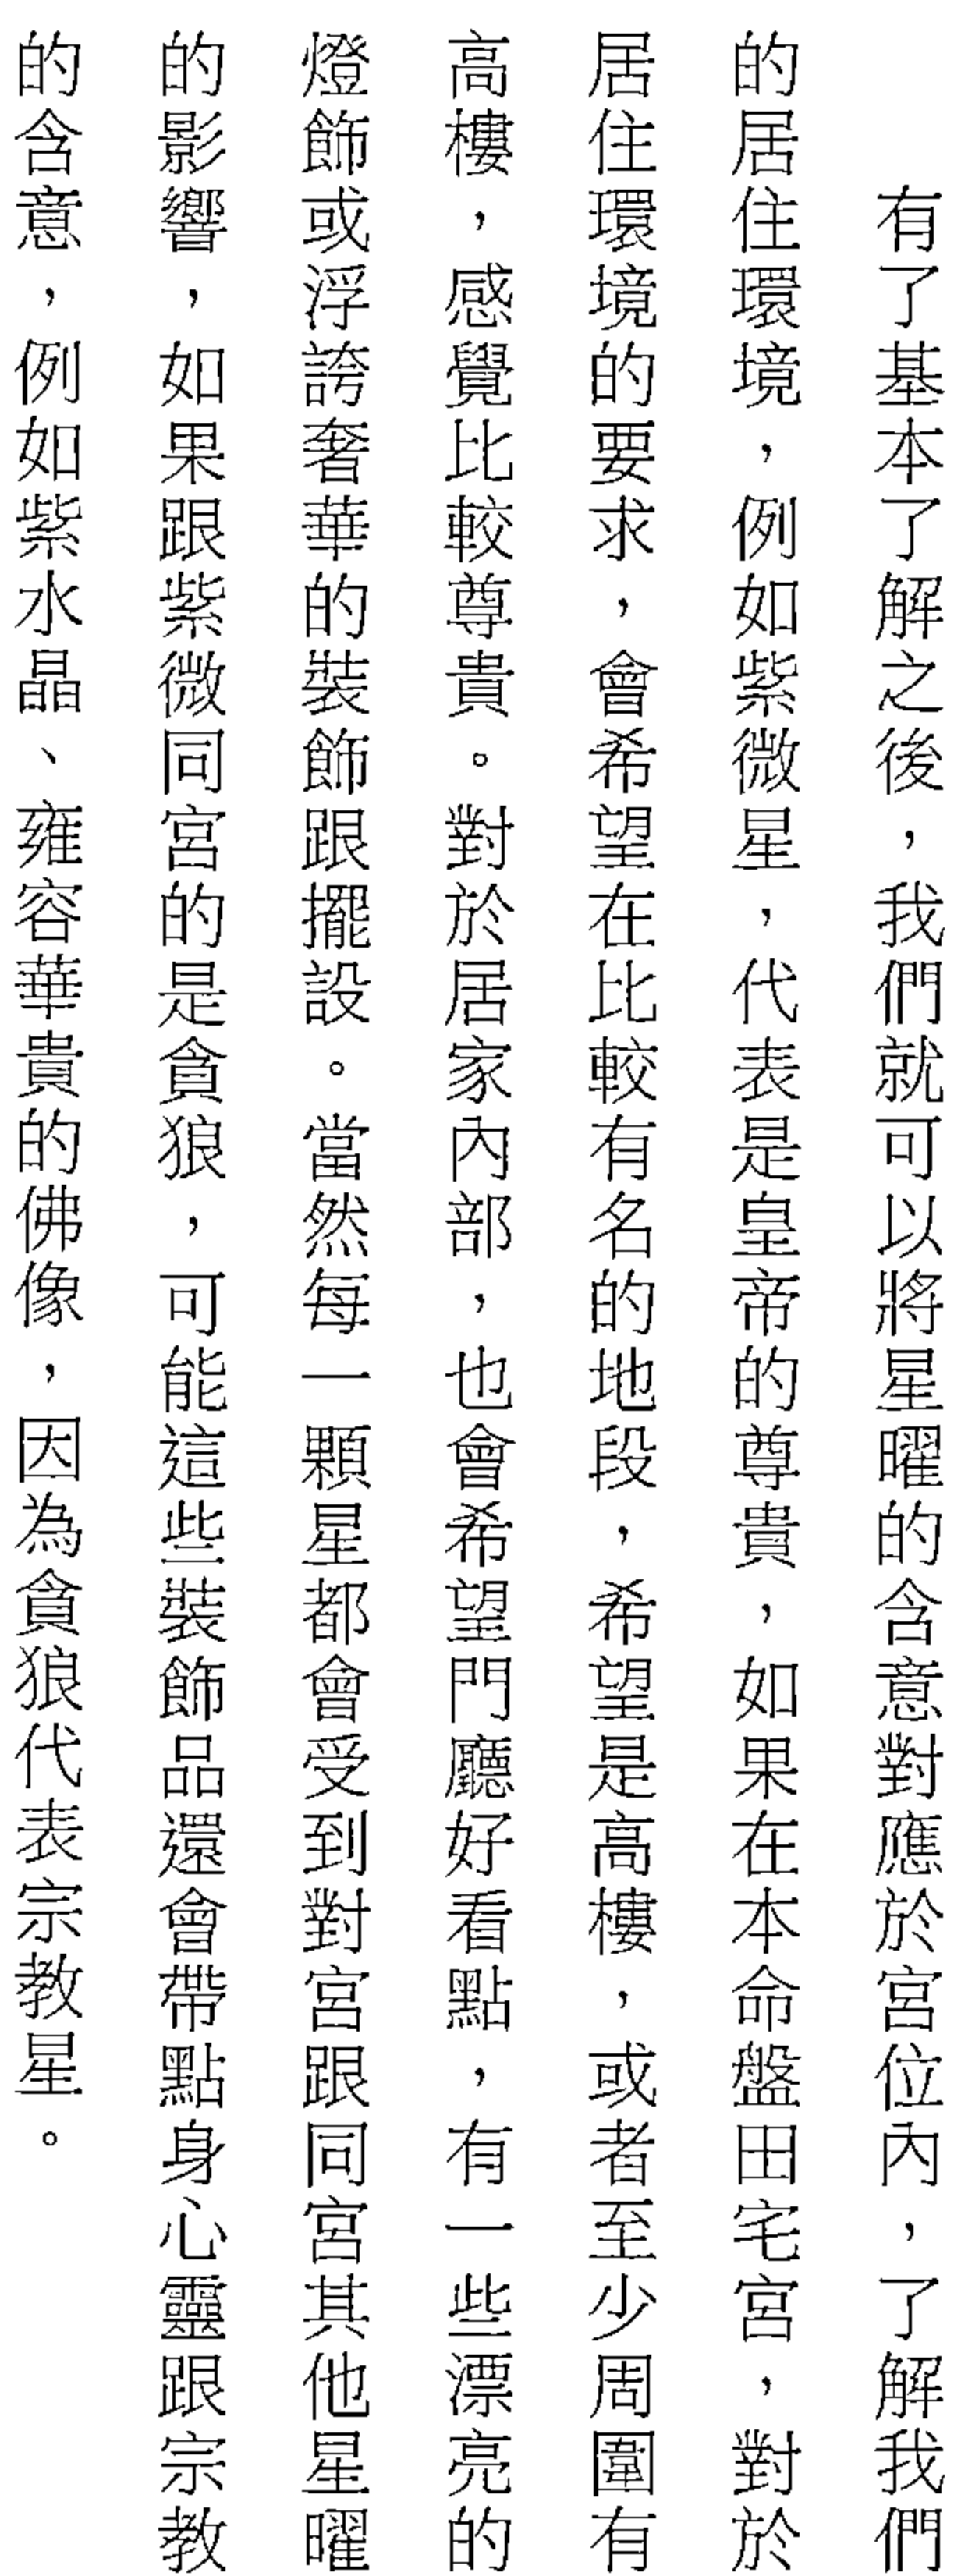 有了基本了解之後，我們就可以將星曜的含意對應於宮位內，了解我們
的居住環境，例如紫微星，代表是皇帝的尊貴，如果在本命盤田宅宮，對於
居住環境的要求，會希望在比較有名的地段，希望是高樓，或者至少周圍有
高樓，感覺比較尊貴。對於居家內部，也會希望門廳好看點，有一些漂亮的
燈飾或浮誇奢華的裝飾跟擺設。當然每一顆星都會受到對宮跟同宮其他星曜
的影響，如果跟紫微同宮的是貪狼，可能這些裝飾品還會帶點身心靈跟宗教
的含意，例如紫水晶、雍容華貴的佛像，因為貪狼代表宗教星。